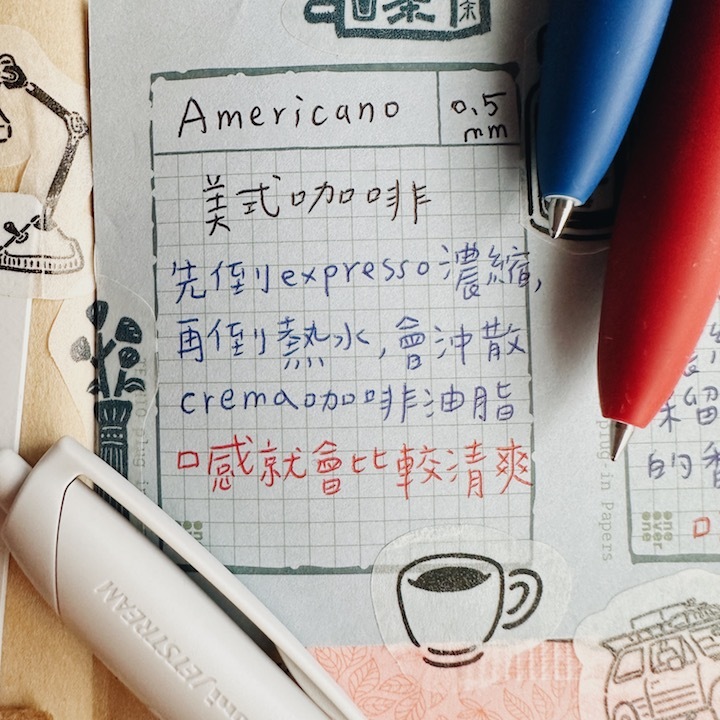 茶
Americano
0.5
mm
美式咖啡
先倒expresso濃縮,
再倒熱水,會沖散
crema咖啡油脂
口感就會比較清爽
留
的香
口
one
over
one
one
over
one
plug-in Papers
uni JETSTREAM